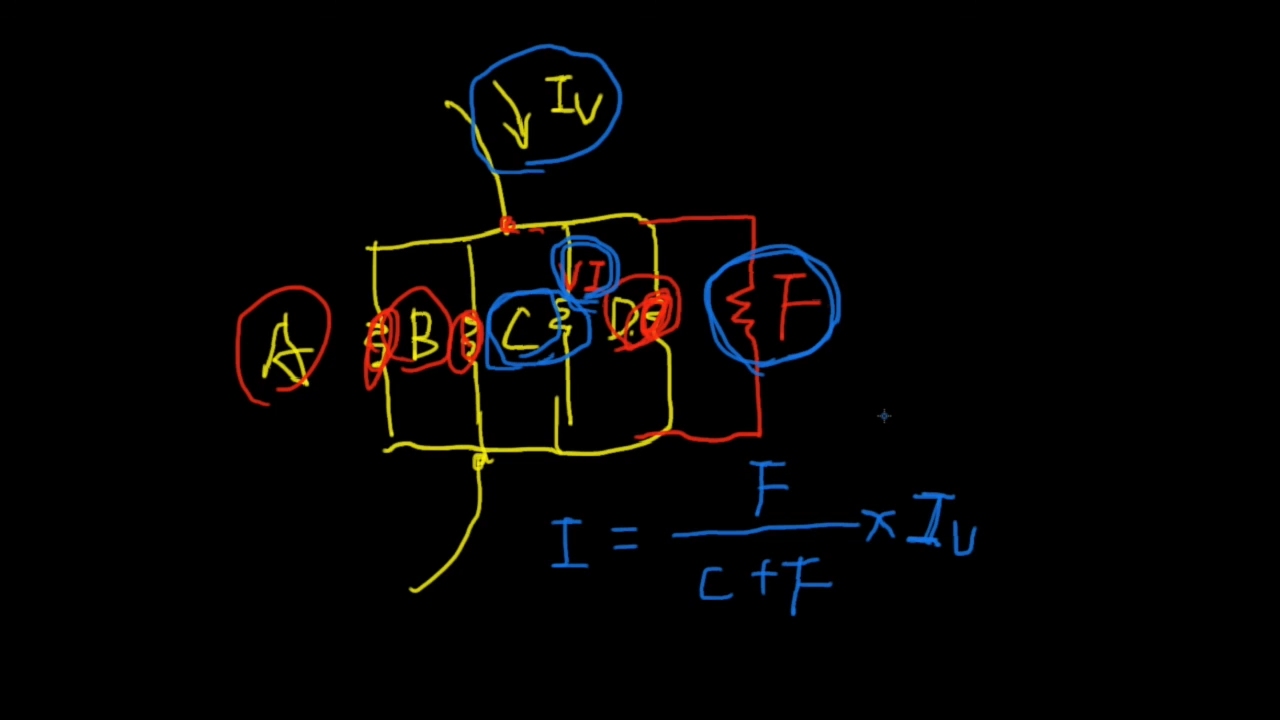 Iv
I
A B C D F
I = F / (C + F) × Iv